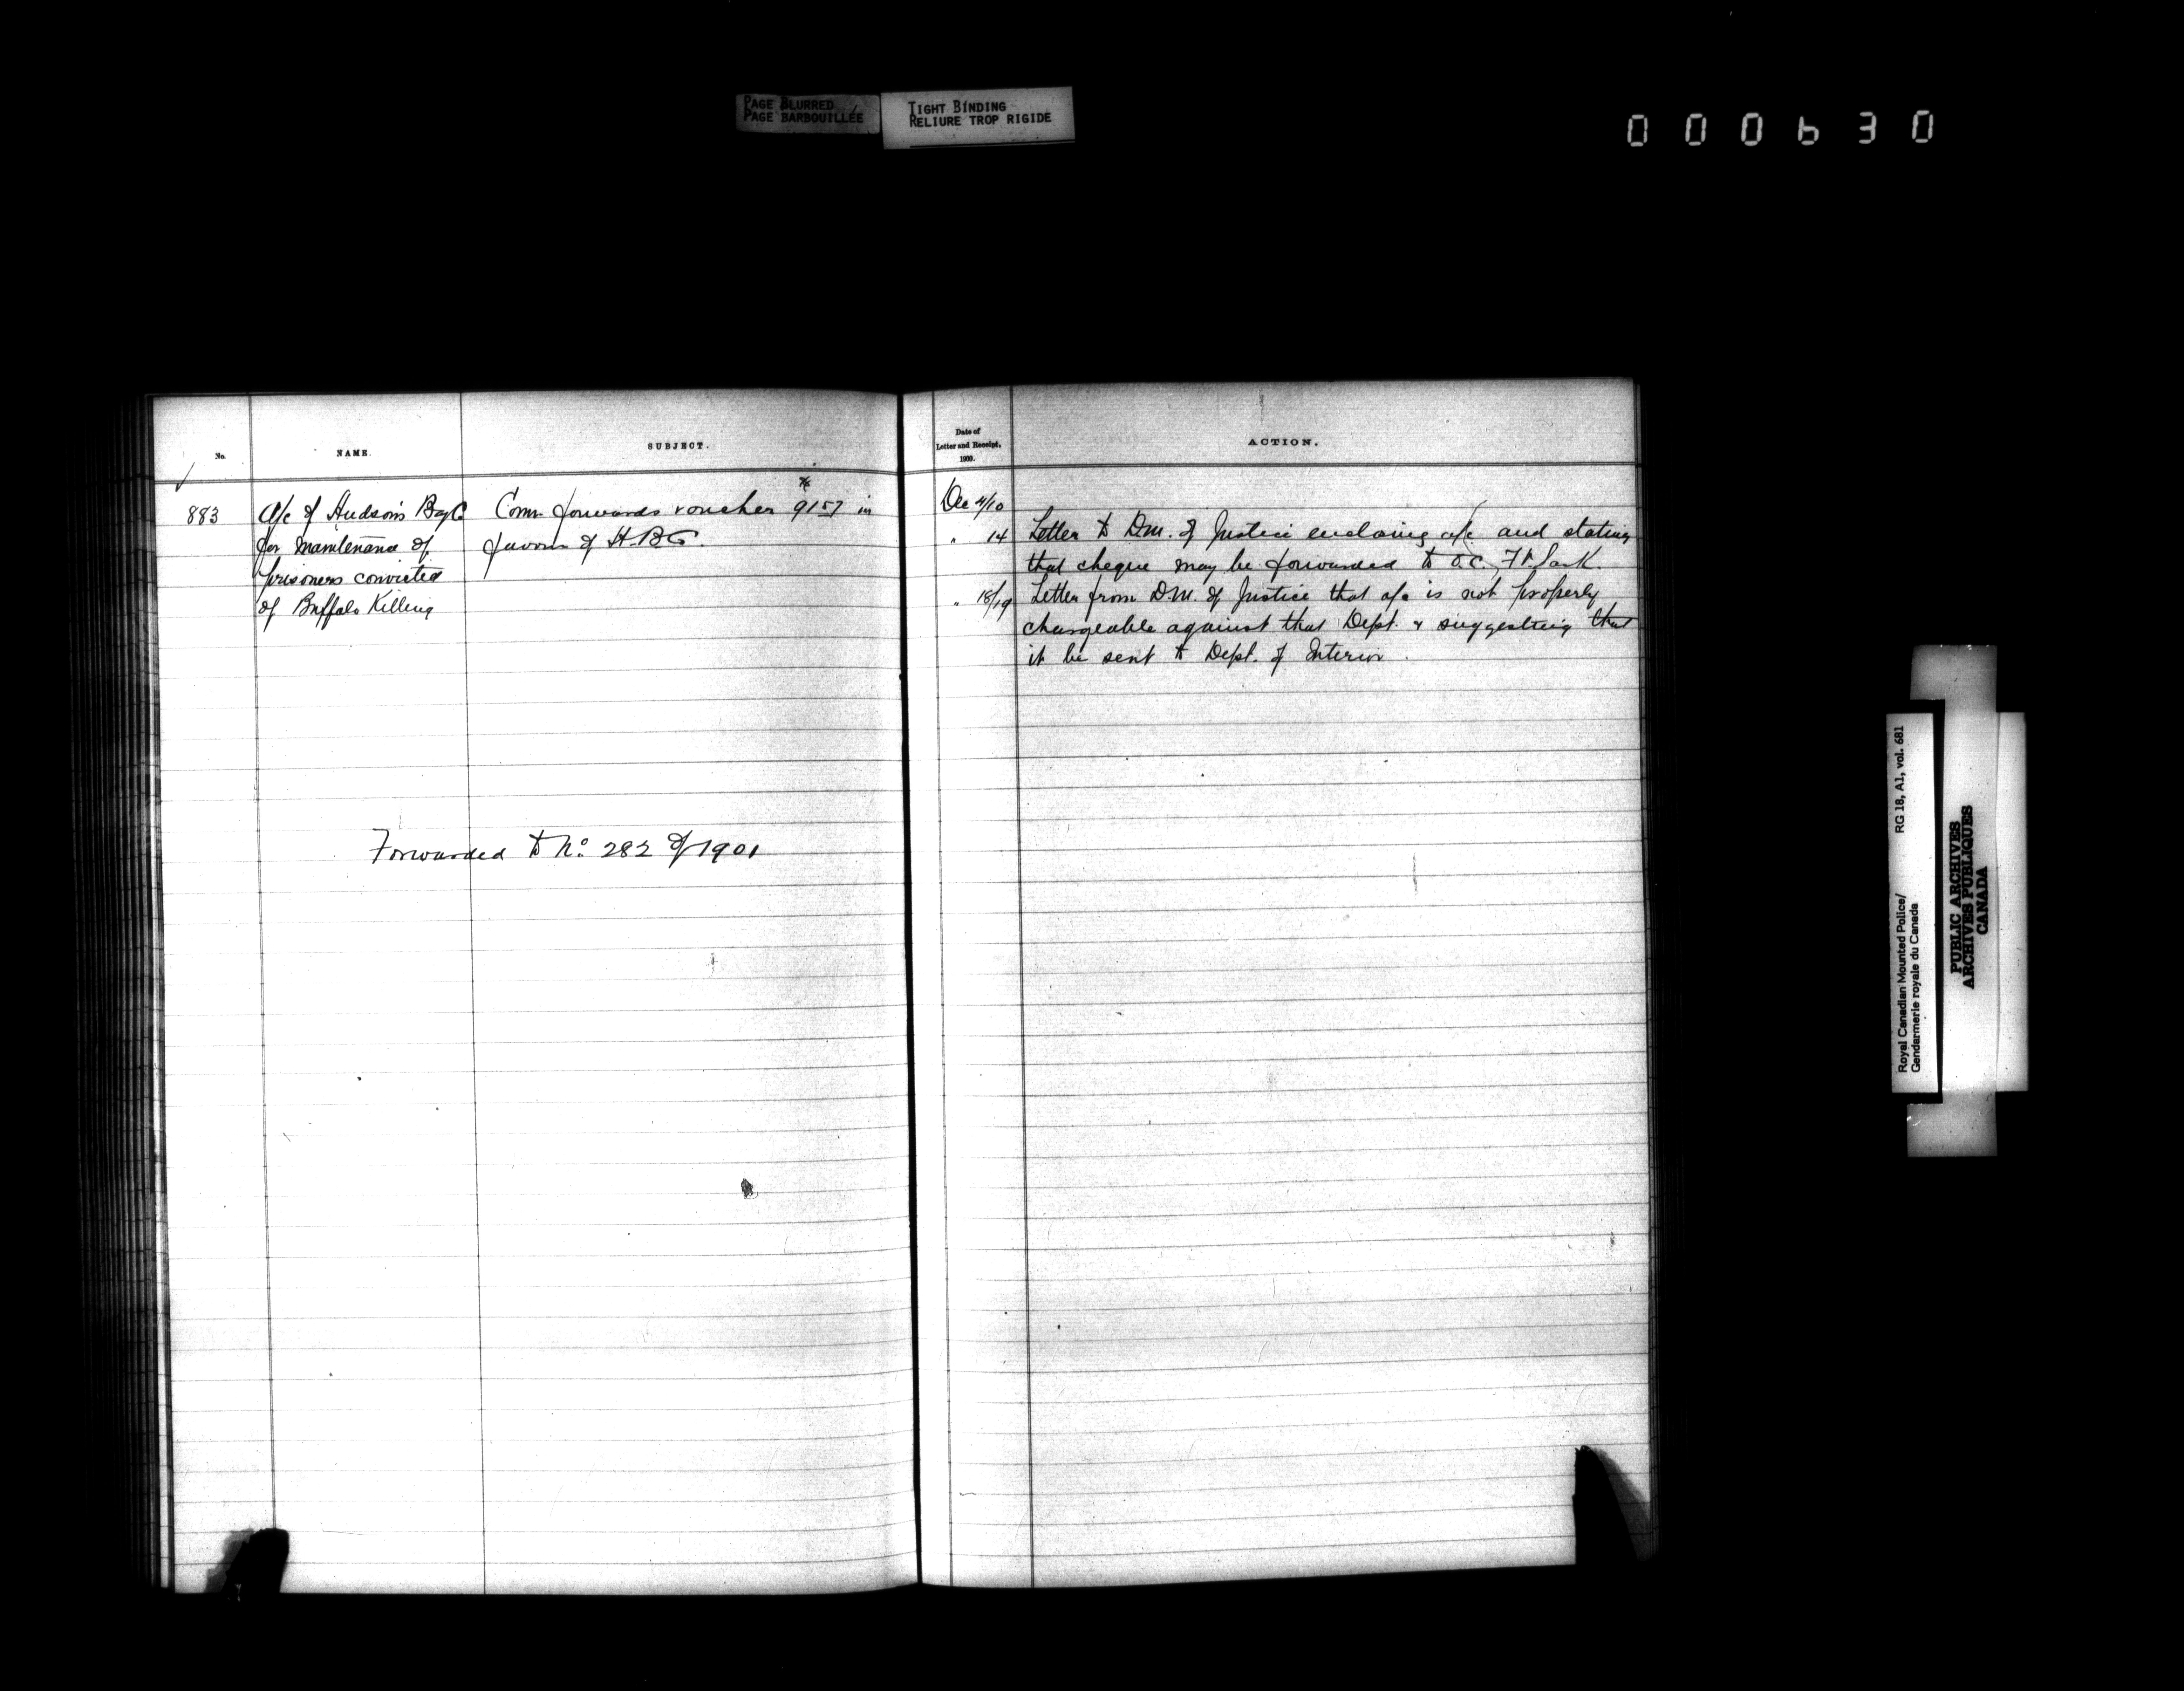 PAGE BLURRED
PAGE BARBOUILLÉE
TIGHT BINDING
RELIURE TROP RIGIDE
000630
No.
NAME.
SUBJECT.
Date of
Letter and Receipt,
1900.
ACTION.
883
A/c of Hudson's Bay Co
for maintenance of
prisoners convicted
of Buffalo Killing
Comr forwards voucher 9157 in
favour of H.B.Co.
Forwarded to No. 282 of 1901
Dec 4/10
" 14
Letter to D.M. of Justice enclosing a/c. and stating
that cheque may be forwarded to O.C. Ft. Sask.
" 18/19
Letter from D.M. of Justice that a/c is not properly
chargeable against that Dept. & suggesting that
it be sent to Dept. of Interior.
Royal Canadian Mounted Police/ RG 18, A1, vol. 681
Gendarmerie royale du Canada
PUBLIC ARCHIVES
ARCHIVES PUBLIQUES
CANADA